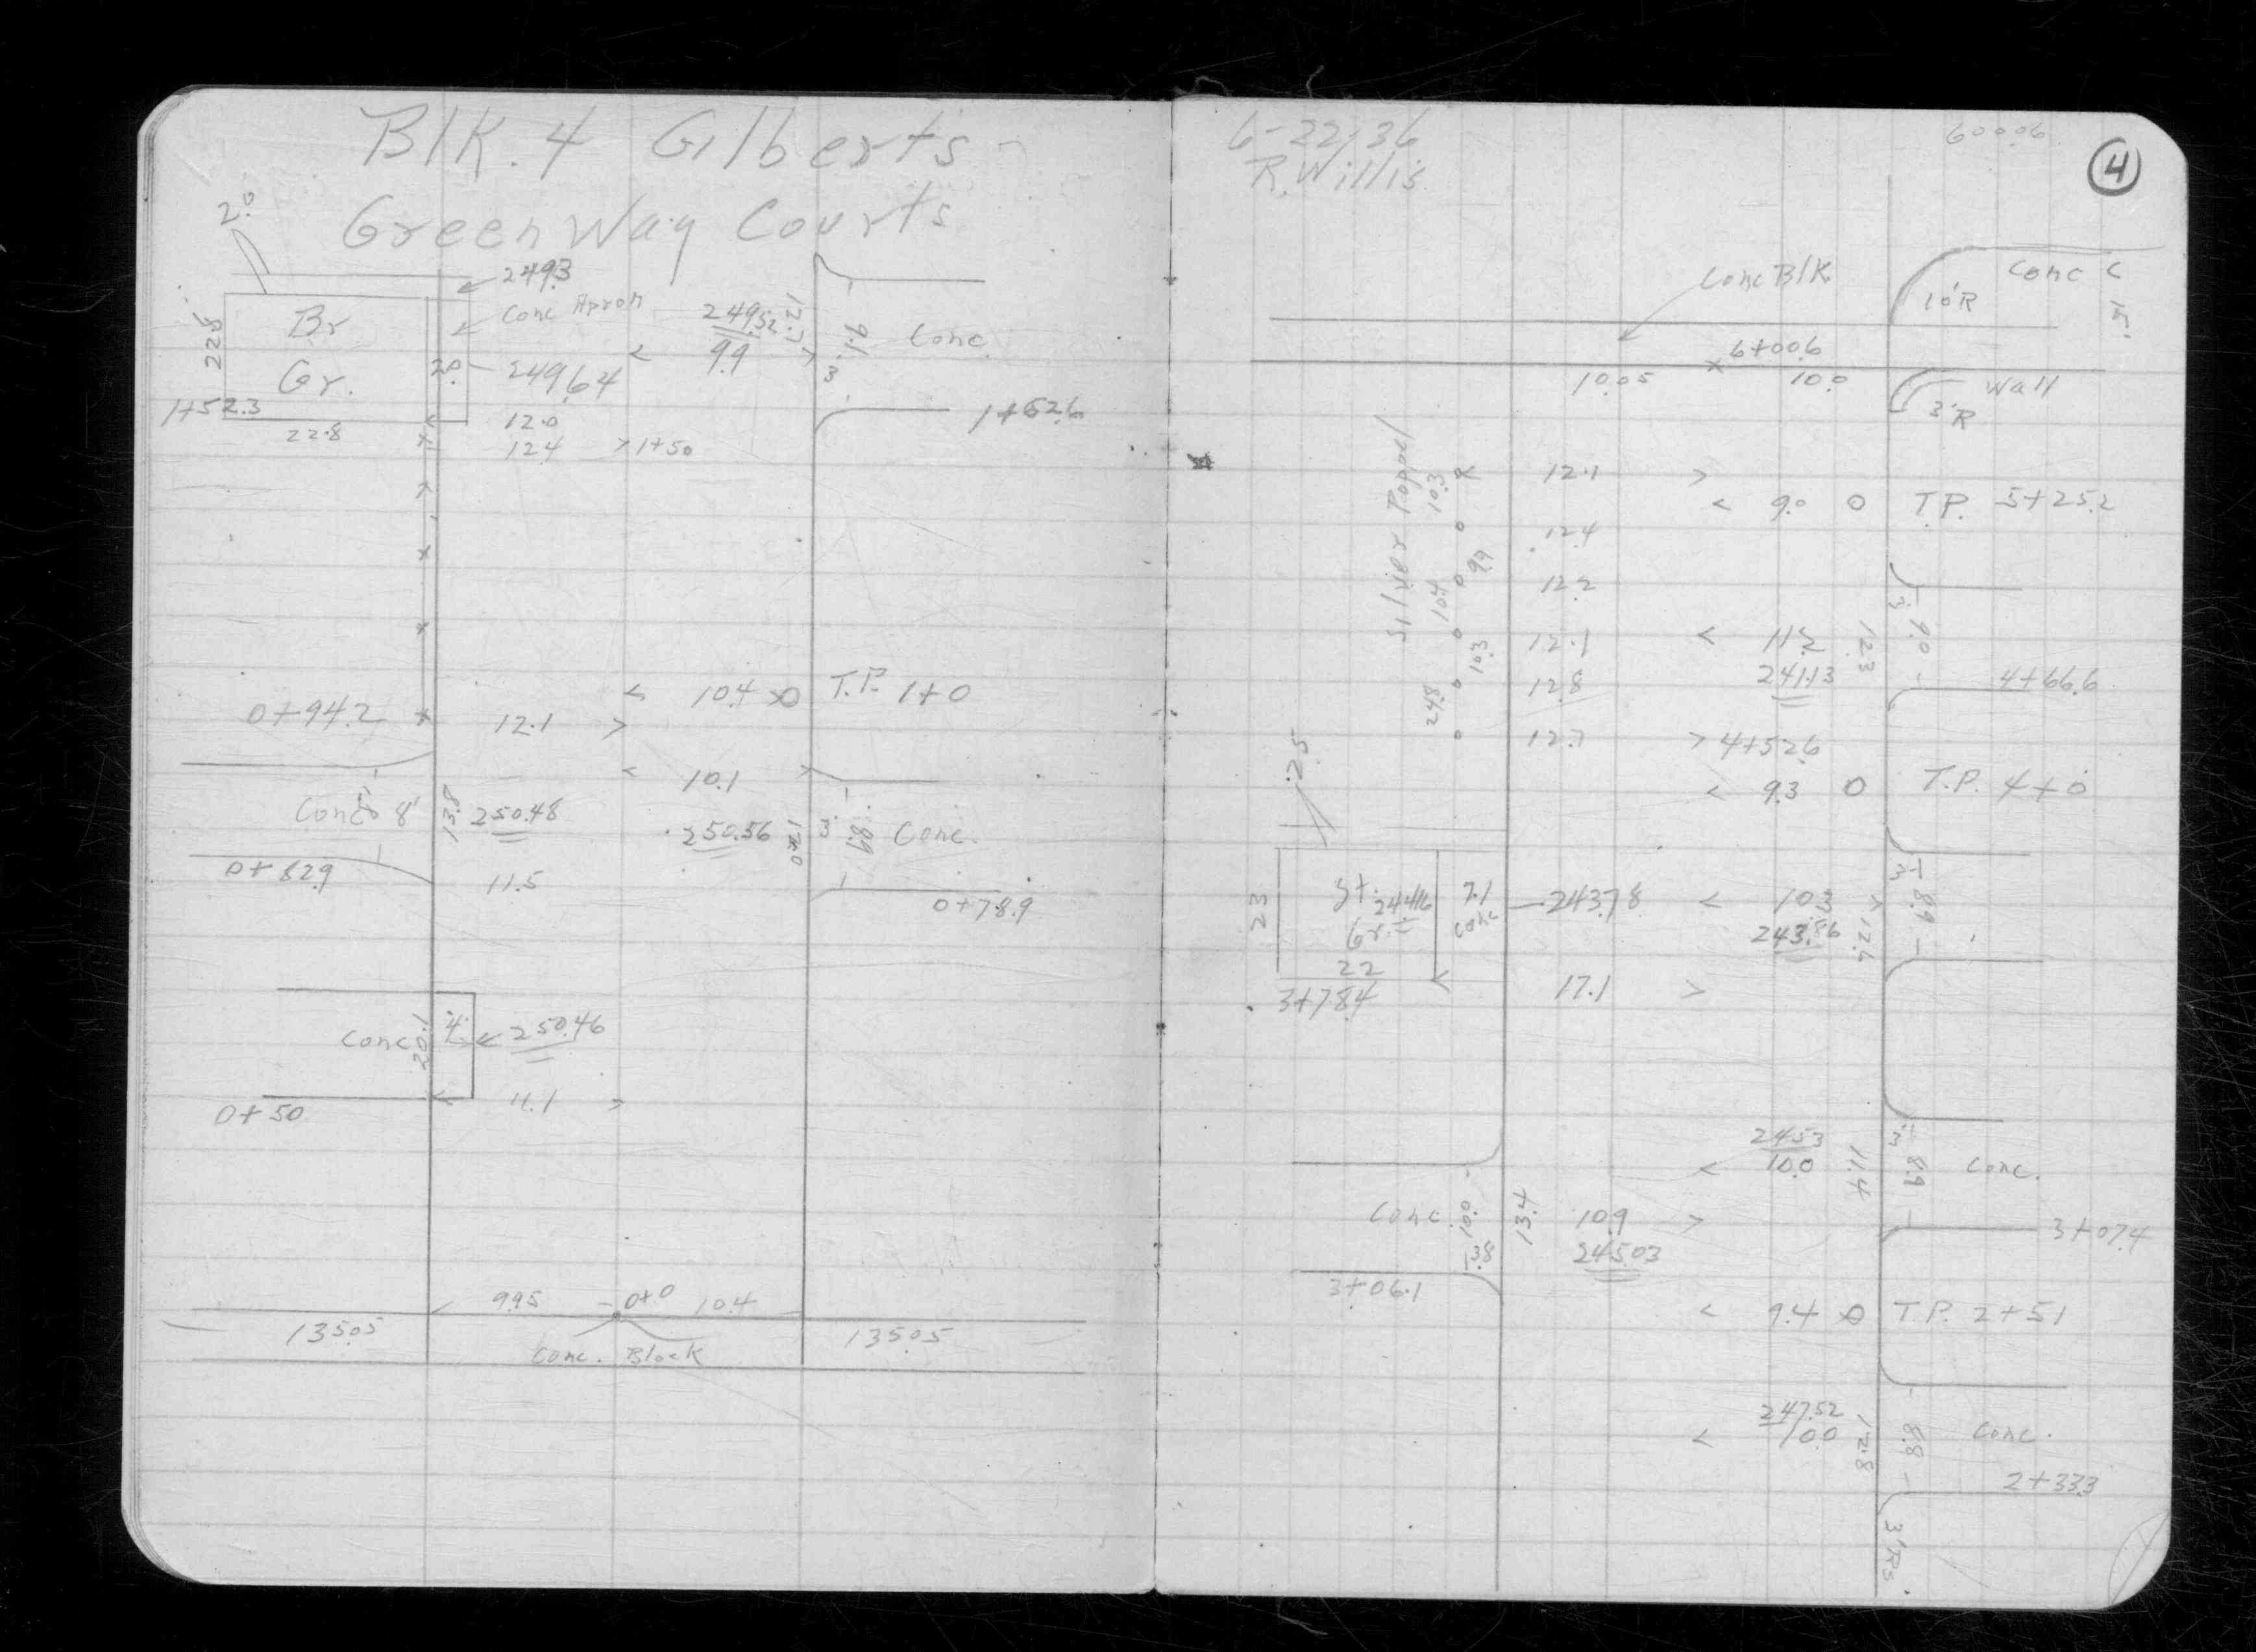 Blk. 4 Gilberts
Green Way Courts
2.0
249.3
Conc Apron
Br
Gr.
22.5
20.
249.64
249.52
12.7
9.9
3.
9.1
Conc.
1+52.3
22.8
12.0
12.4 > 1+50
1+62.6
0+94.2
12.1 >
< 10.4 O T.P. 1+0
< 10.1 >
Conc 8'
13.8
250.48
250.56
12.0
3.
8.9
Conc.
0+82.9
11.5
0+78.9
Conc
20.1
4.
250.46
0+50
11.1 >
9.95 0+0 10.4
135.05
135.05
Conc. Block
6-22-36
R. Willis
600.06
4
Conc Blk.
10'R
Conc
15'
6+00.6
10.05
10.0
Wall
3'R
Silver Poppel
10.3
12.1 >
< 9.0 O T.P. 5+25.2
12.4
9.9
12.2
10.4
12.1
< 11.5
12.3
3
9.0
10.3
241.13
12.8
4+66.6
24.8
12.7 > 4+52.6
< 9.3 O T.P. 4+0
.25
23
St.
Gr.
244.16
7.1
Conc
243.78
< 10.3 >
243.86
12.6
3
8.9
22
3+78.4
17.1 >
245.3
< 10.0
11.4
3
8.9
Conc.
Conc.
10.0
13.4
10.9 >
3.8
245.03
3+07.4
3+06.1
< 9.4 O T.P. 2+51
247.52
< 10.0
12.8
8.8
Conc.
2+33.3
3'Rs